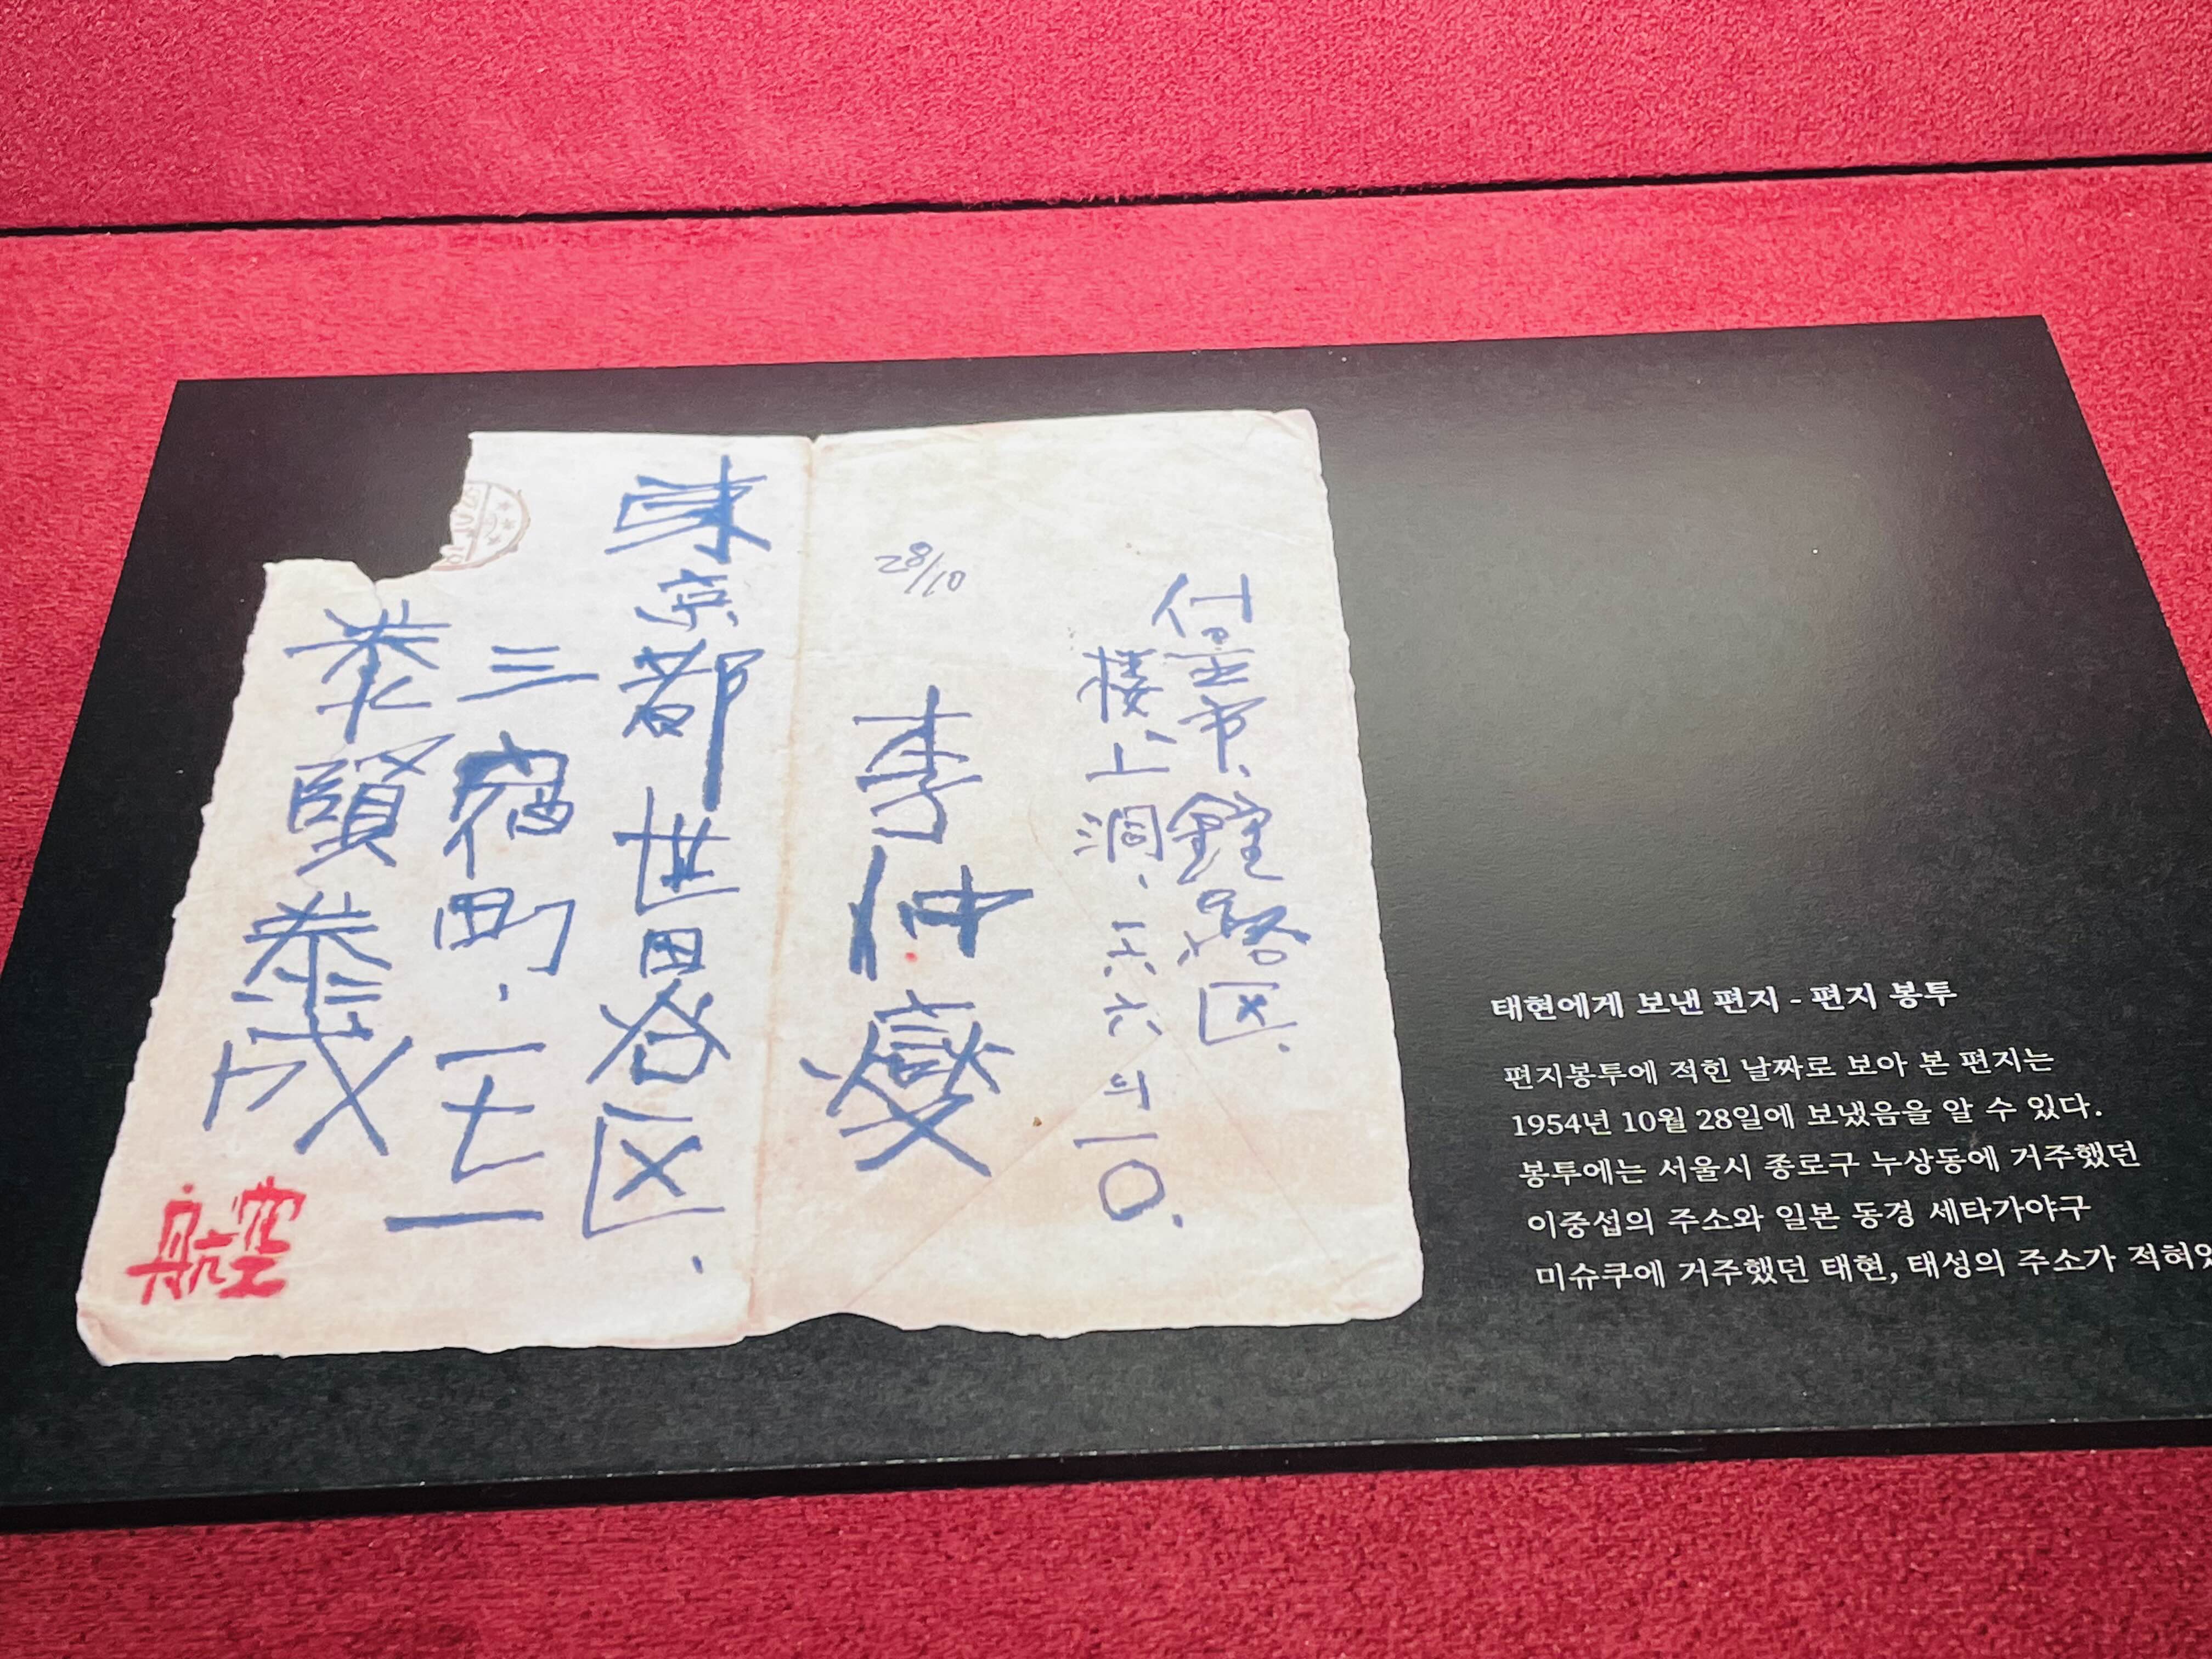 東京都世田谷区.
三宿町.一七一
泰賢
泰成
航空
28/10
李仲燮
市、鐘路区.
楼上洞、一六六의一〇.
태현에게 보낸 편지 - 편지 봉투
편지봉투에 적힌 날짜로 보아 본 편지는
1954년 10월 28일에 보냈음을 알 수 있다.
봉투에는 서울시 종로구 누상동에 거주했던
이중섭의 주소와 일본 동경 세타가야구
미슈쿠에 거주했던 태현, 태성의 주소가